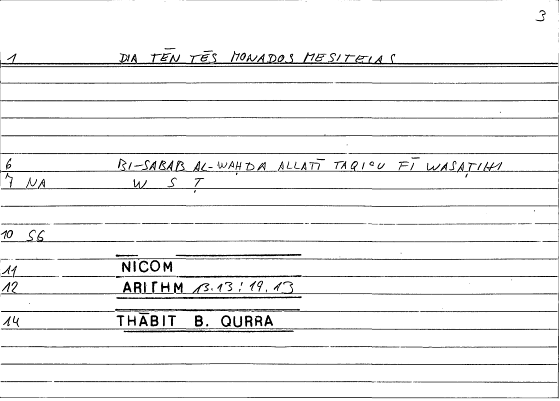 3
1 DIA TĒN TĒS MONADOS MESITEIAS
6 BI-SABAB AL-WAḤDA ALLATĪ TAQIʿU FĪ WASAṬIHI
7 NA W S Ṭ
10 S6
11 NICOM
12 ARITHM 13.13 : 19.13
14 THĀBIT B. QURRA